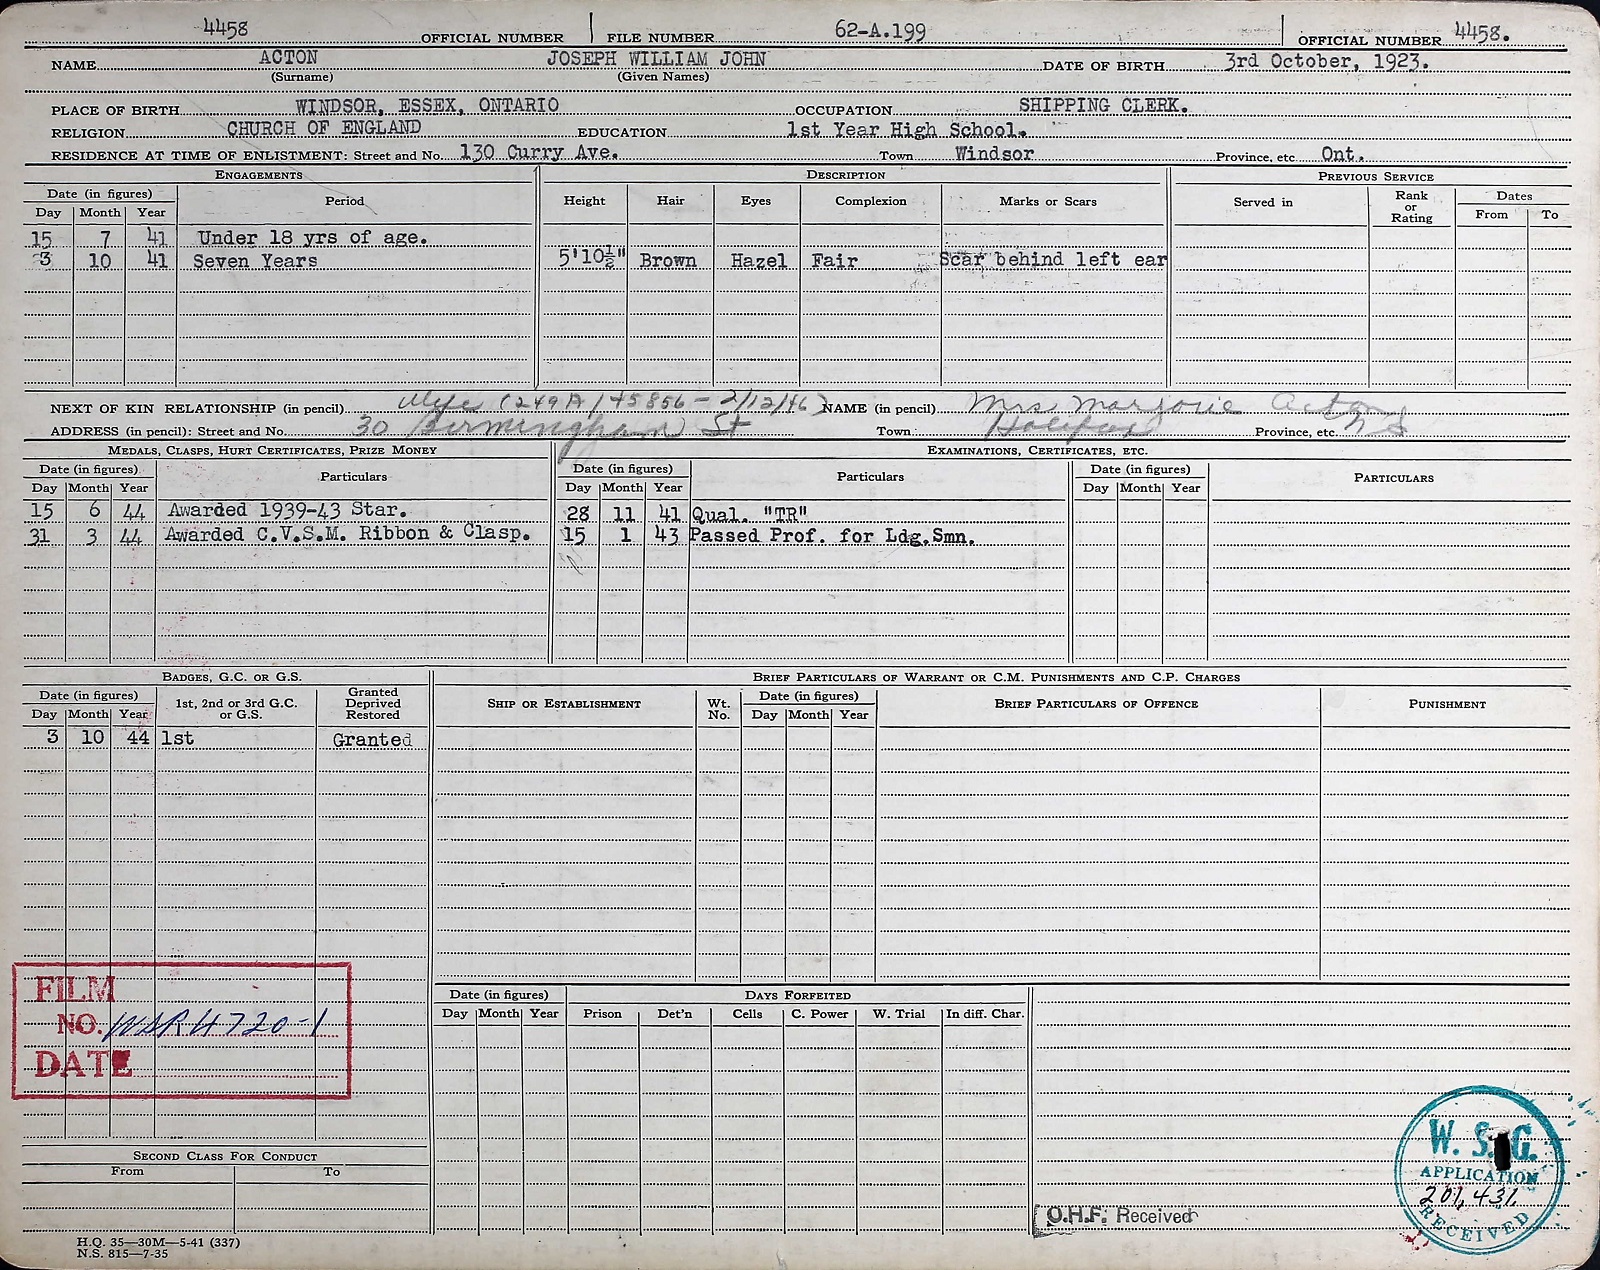 4458 OFFICIAL NUMBER FILE NUMBER 62-A.199 OFFICIAL NUMBER 4458.
NAME ACTON JOSEPH WILLIAM JOHN DATE OF BIRTH 3rd October, 1923.
(Surname) (Given Names)
PLACE OF BIRTH WINDSOR, ESSEX, ONTARIO OCCUPATION SHIPPING CLERK.
RELIGION CHURCH OF ENGLAND EDUCATION 1st Year High School.
RESIDENCE AT TIME OF ENLISTMENT: Street and No. 130 Curry Ave. Town Windsor Province, etc Ont.
ENGAGEMENTS DESCRIPTION PREVIOUS SERVICE
Date (in figures) Period Height Hair Eyes Complexion Marks or Scars Served in Rank or Rating Dates
Day Month Year From To
15 7 41 Under 18 yrs of age.
3 10 41 Seven Years 5'10½" Brown Hazel Fair Scar behind left ear
NEXT OF KIN RELATIONSHIP (in pencil) Wife (249A) 45856 - 2/12/46) NAME (in pencil) Mrs Marjorie Acton
ADDRESS (in pencil): Street and No. 30 Birmingham St Town Halifax Province, etc. NS
MEDALS, CLASPS, HURT CERTIFICATES, PRIZE MONEY EXAMINATIONS, CERTIFICATES, ETC.
Date (in figures) Particulars Date (in figures) Particulars Date (in figures) PARTICULARS
Day Month Year Day Month Year Day Month Year
15 6 44 Awarded 1939-43 Star. 28 11 41 Qual. "TR"
31 3 44 Awarded C.V.S.M. Ribbon & Clasp. 15 1 43 Passed Prof. for Ldg.Smn.
BADGES, G.C. OR G.S. BRIEF PARTICULARS OF WARRANT OR C.M. PUNISHMENTS AND C.P. CHARGES
Date (in figures) 1st, 2nd or 3rd G.C. or G.S. Granted Deprived Restored SHIP OR ESTABLISHMENT Wt. No. Date (in figures) BRIEF PARTICULARS OF OFFENCE PUNISHMENT
Day Month Year Day Month Year
3 10 44 1st Granted
FILM
NO. WSR 4720-1
DATE
Date (in figures) DAYS FORFEITED
Day Month Year Prison Det'n Cells C. Power W. Trial In diff. Char.
SECOND CLASS FOR CONDUCT
From To
W. S. G.
APPLICATION
201,431
RECEIVED
O.H.F. Received
H.Q. 35—30M—5-41 (337)
N.S. 815—7-35